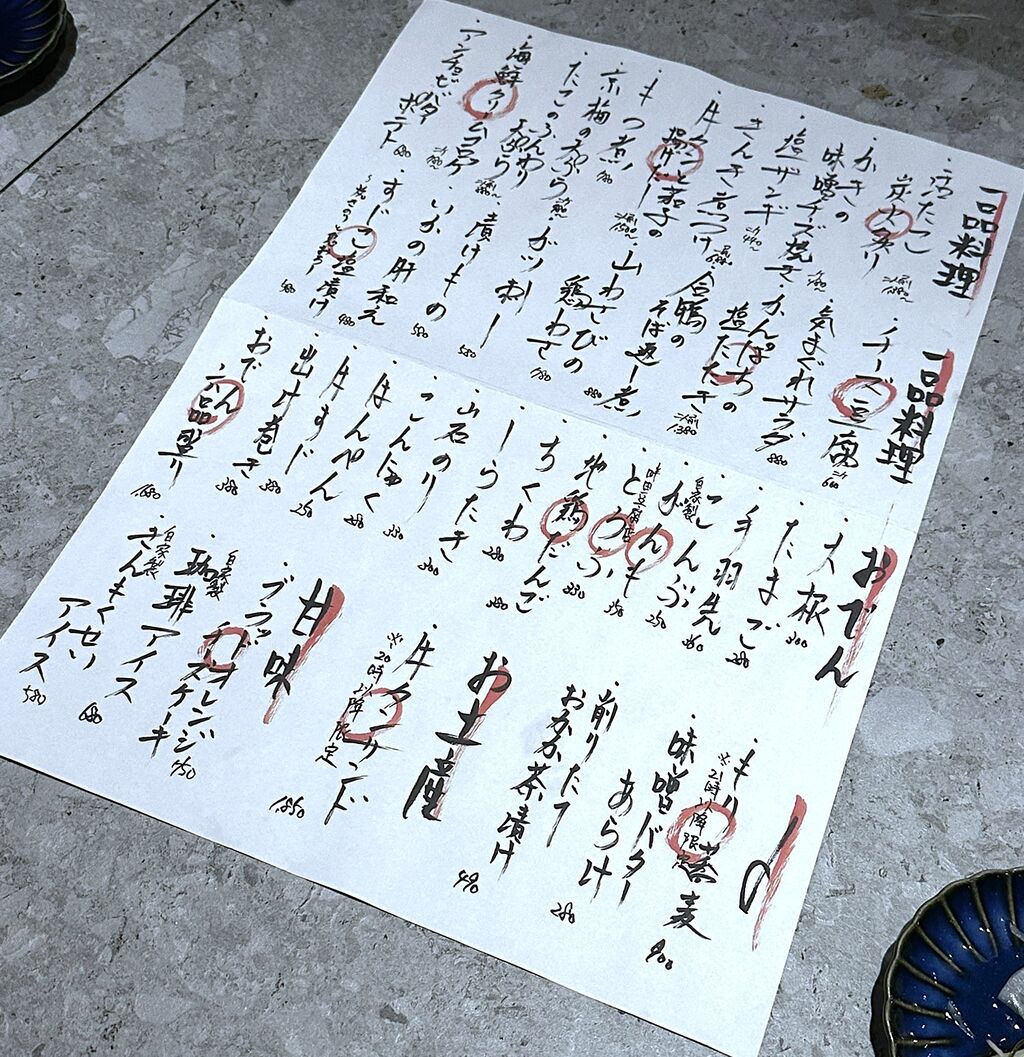 一品料理
・活たこ
炭火炙り
・かきの
味噌チーズ焼き
・塩ザンギ
・きんき煮つけ
・牛タンと茄子の
揚げだし
・もつ煮 780
・京梅の天ぷら
・たこのふんわり
天ぷら
・海鮮クリームコロッケ
・アンチョビバター
ポテト 680
一品料理
・チーズ豆腐 600
・気まぐれサラダ 880
・かんぱちの
塩たたき 1,380
・合鴨の
そば返し煮 880
・山わさびの
鶏わさ 780
・ガツ刺し
・漬けもの 580
・いかの肝和え 580
・すじこ塩漬け 980
おでん
・大根 300
・たまご 280
・手羽先
・つぶ
自家製
・がんも
・こんぶ 250
・とうふ 350
・地鶏だんご 330
・ちくわ 280
・しらたき 280
・山石のり 300
・こんにゃく
・はんぺん 280
・牛すじ
・出汁巻き 380
・おでん
六品盛り 1,680
〆
・もり蕎麦 900
※21時以降限定
・味噌バター
あらけ 280
・削りたて
おかか茶漬け 490
お土産
・牛タンサンド 1,850
※20時以降限定
甘味
・ブラッドオレンジ
チーズケーキ 750
自家製
・珈琲アイス 680
自家製
・きんもくせい
アイス 580